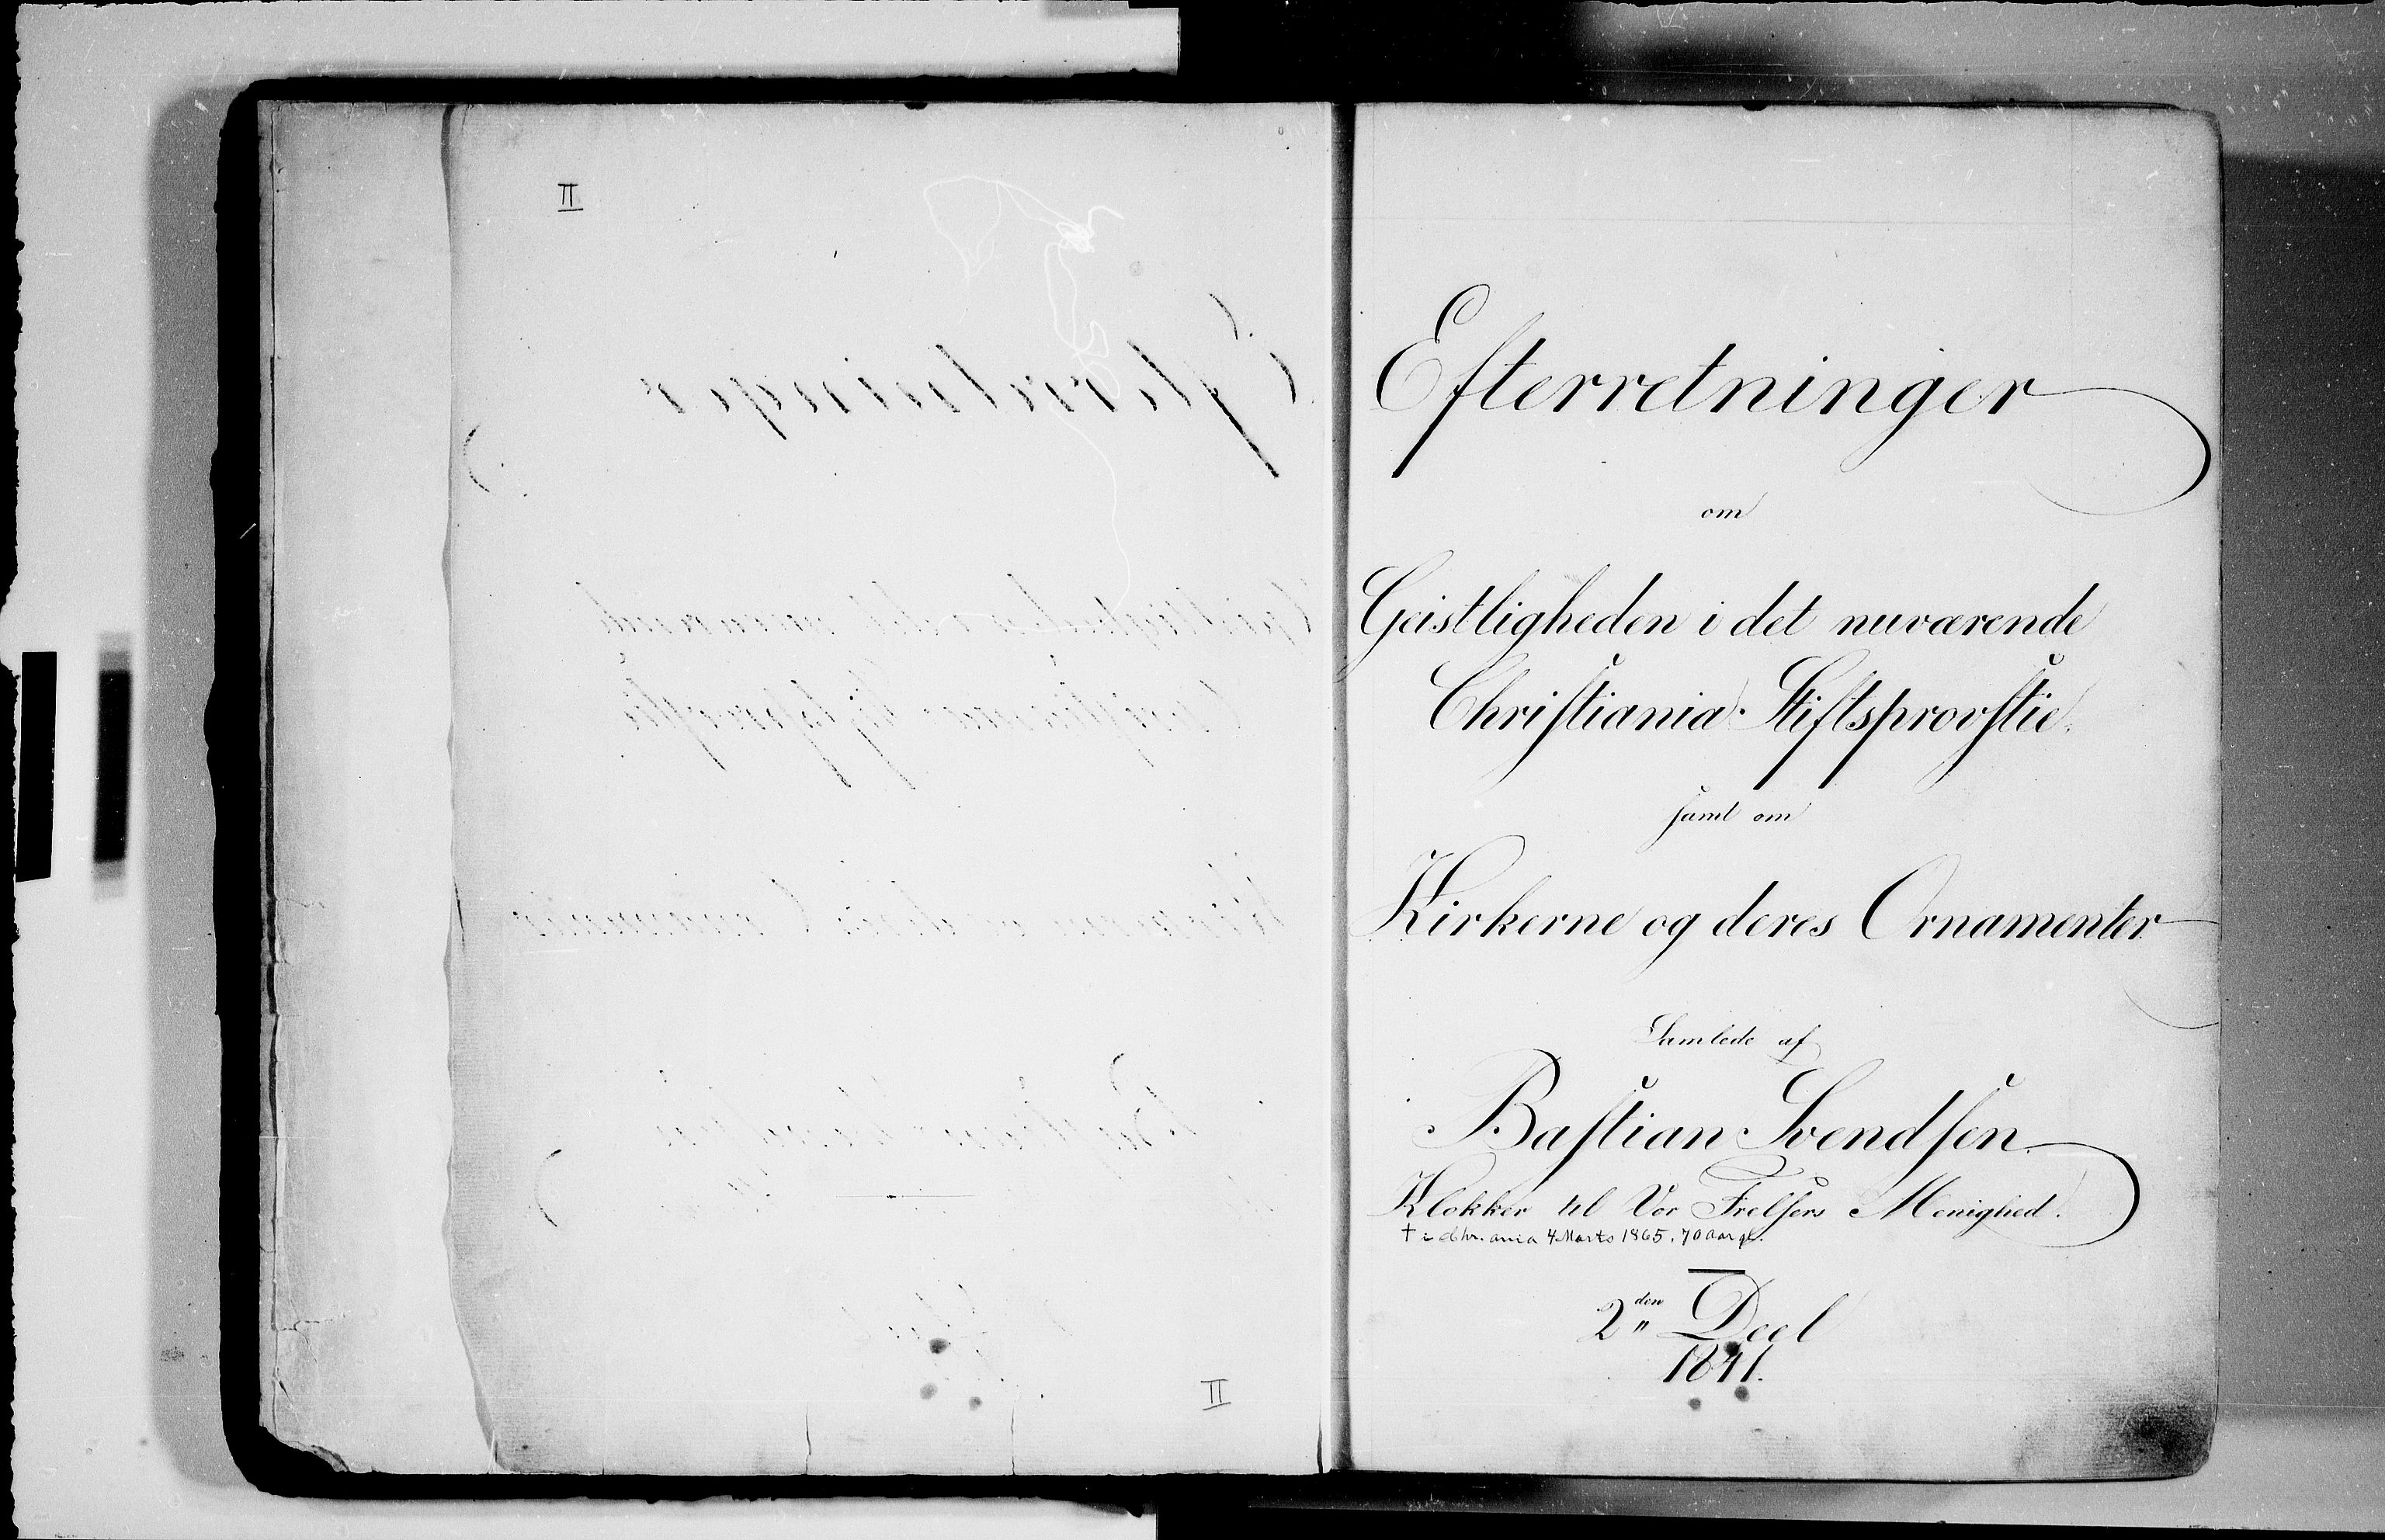 II
II
Efterretninger
om
Geistligheden i det nuværende
Christiania Stiftsprovstie.
samt om
Kirkerne og deres Ornamenter
Samlede af
Bastian Svendsen
Klokker til Vor Frelsers Menighed.
† i Chr.ania 4 Marts 1865, 70 aar gl.
2den Deel
1841.